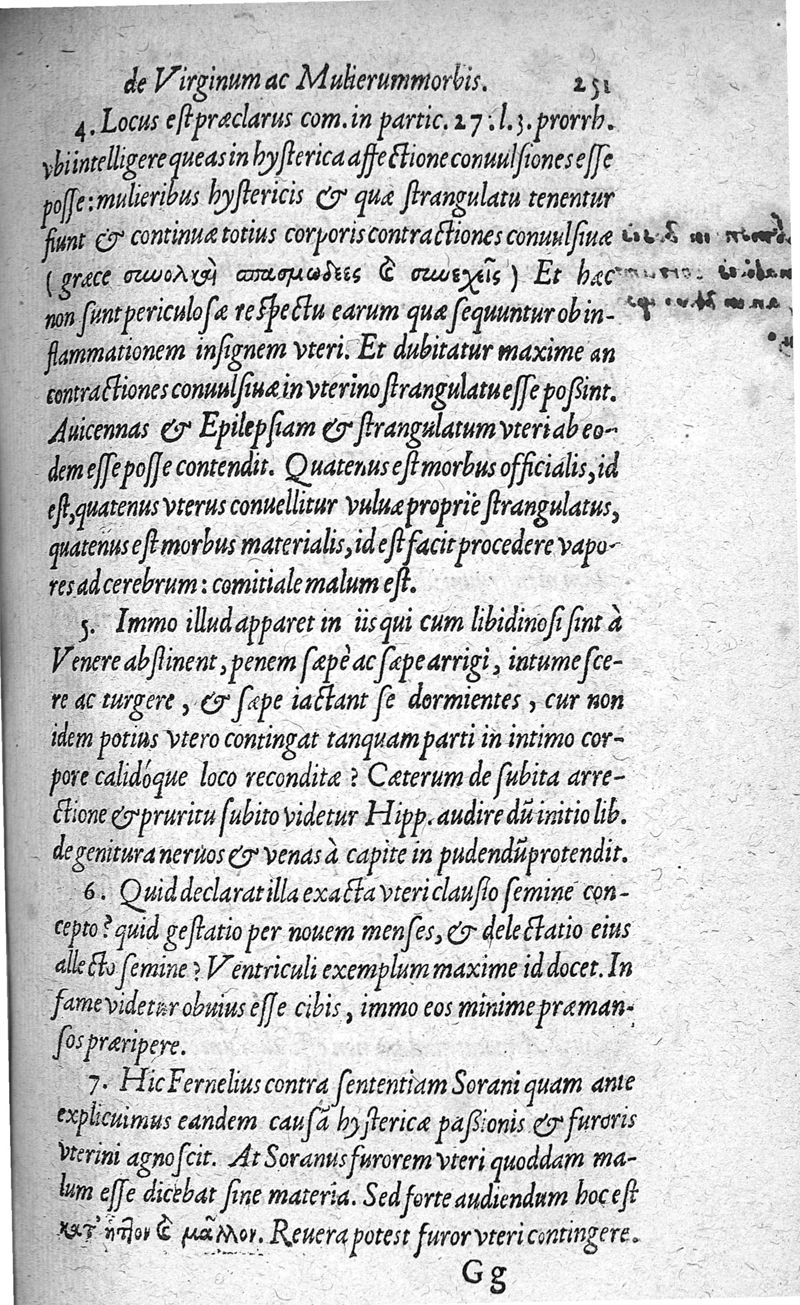 de Virginum ac Mulierum morbis. 251
4. Locus est præclarus com. in partic. 27. l. 3. prorrh.
vbi intelligere queas in hysterica affectione conuulsiones esse
posse: mulieribus hystericis & quæ strangulatu tenentur
fiunt & continuæ totius corporis contractiones conuulsiuæ
(græce σπασμώδεες συνεχεῖς) Et hæc
non sunt periculosæ respectu earum quæ sequuntur ob in-
flammationem insignem vteri. Et dubitatur maxime an
contractiones conuulsiuæ in vterino strangulatu esse possint.
Auicennas & Epilepsiam & strangulatum vteri ab eo-
dem esse posse contendit. Quatenus est morbus officialis, id
est, quatenus vterus conuellitur vuluæ propriè strangulatus,
quatenus est morbus materialis, id est facit procedere vapo-
res ad cerebrum: comitiale malum est.
5. Immo illud apparet in iis qui cum libidinosi sint à
Venere abstinent, penem sæpè ac sæpe arrigi, intumesce-
re ac turgere, & sæpe iactant se dormientes, cur non
idem potius vtero contingat tanquam parti in intimo cor-
pore calidóque loco reconditæ? Cæterum de subita arre-
ctione & pruritu subito videtur Hipp. audire dū initio lib.
de genitura neruos & venas à capite in pudendū protendit.
6. Quid declarat illa exacta vteri clausio semine con-
cepto? quid gestatio per nouem menses, & delectatio eius
allecto semine? Ventriculi exemplum maxime id docet. In
fame videtur obuius esse cibis, immo eos minime præman-
sos præripere.
7. Hic Fernelius contra sententiam Sorani quam ante
explicuimus eandem causā hystericæ passionis & furoris
vterini agnoscit. At Soranus furorem vteri quoddam ma-
lum esse dicebat sine materia. Sed forte audiendum hoc est
κατ' ἧττον μᾶλλον. Reuera potest furor vteri contingere.
Gg